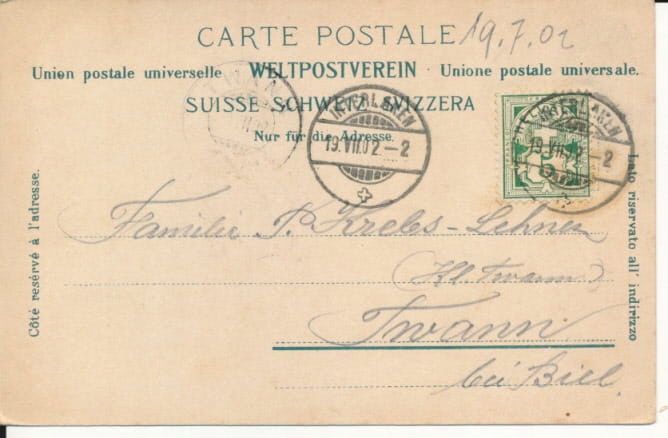 CARTE POSTALE
19.7.02
Union postale universelle WELTPOSTVEREIN Unione postale universale.
SUISSE SCHWEIZ SVIZZERA
Nur für die Adresse.
INTERLAKEN
19.VII.02-2
INTERLAKEN
19.VII.02-2
Côté reservé à l'adresse.
Lato riservato all' indirizzo
Familie J. Krebs-Lehner
(Kl. Twann)
Twann
bei Biel.